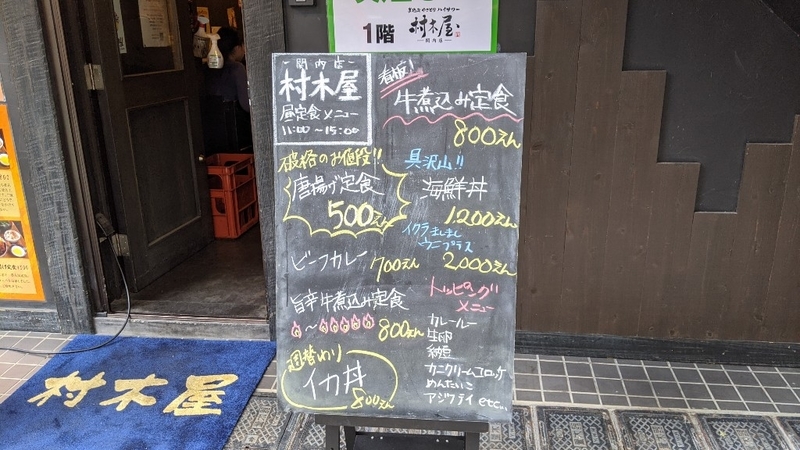 1階
村木屋
関内店
関内店
村木屋
昼定食メニュー
11:00～15:00
看板!
牛煮込み定食
800えん
破格のお値段!!
唐揚げ定食
500えん
ビーフカレー 700えん
旨辛牛煮込み定食
～
800えん
週替わり
イカ丼
800えん
具沢山!!
海鮮丼
1200えん
イクラましまし
ウニプラス
2000えん
トッピング
メニュー
カレールー
生卵
納豆
カニクリームコロッケ
めんたいこ
アジフライ etc...
村木屋